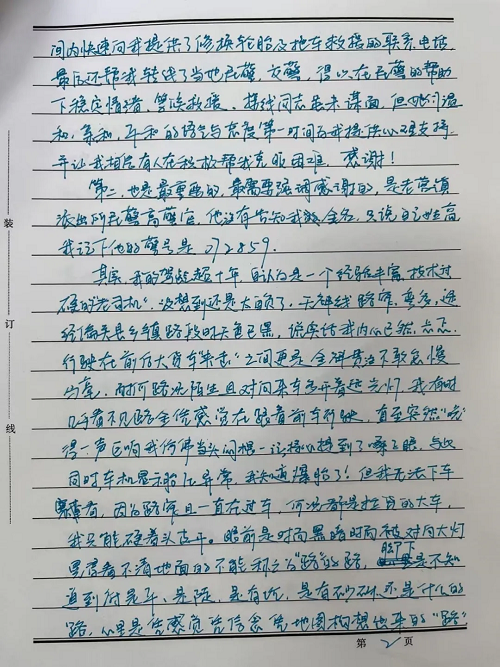 间内快速向我提供了修换轮胎及拖车救援的联系电话,
最后还帮我转线了当地民警,交警,得以在民警的帮助
下稳定情绪、等候救援。接线同志虽未谋面,但她们温
和、亲和、平和的语气与态度第一时间给我提供心理支持,
并让我相信有人在积极帮我克服困难,感谢!
第二,也是最重要的,最需要强调感谢的,是老营镇
派出所民警高警官,他没有告知我数全名,只说自己姓高,
我记下他的警号是072859.
其实,我的驾龄超十年,自认为是一个经验丰富,技术过
硬的"老司机",没想到还是大意了,无神线路窄,弯多,途
经偏关县乡镇路段时天色已黑,说实话我内心已然忐忑,
行驶在前后大货车"夹击"之间更是全神贯注不敢怠慢
丝毫,耐何路况陌生且对向来车多开着远光灯,我有时
几乎看不见路全凭感觉在跟着前车行驶,直至突然"咣"
得一声巨响我仿佛当头闷棍一让 心提到了嗓子眼,与此
同时,车机显示胎压异常,我知道爆胎了!但我无法下车
查看,因为路窄且一直在过车,何况都是拉货的大车,
我只能硬着头皮开。眼前是时而黑暗时而被对向大灯
晃着看不清地面的不能称之为"路"的路,脚下是不知
道到底是平、是陡、是有坑、是有石砾,还是什么的
"路",心里是凭感觉凭信念凭地图构想出来的"路"
装
订
线
第 2 页